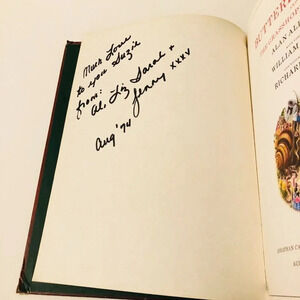 Much Love
to you Suzie
from:
Al, Liz Sarah +
Jenny xxxv
Aug '74
BUTTER
THE GRASSHOP
ALAN AL
WILLIAM
RICHAR
JONATHAN CA